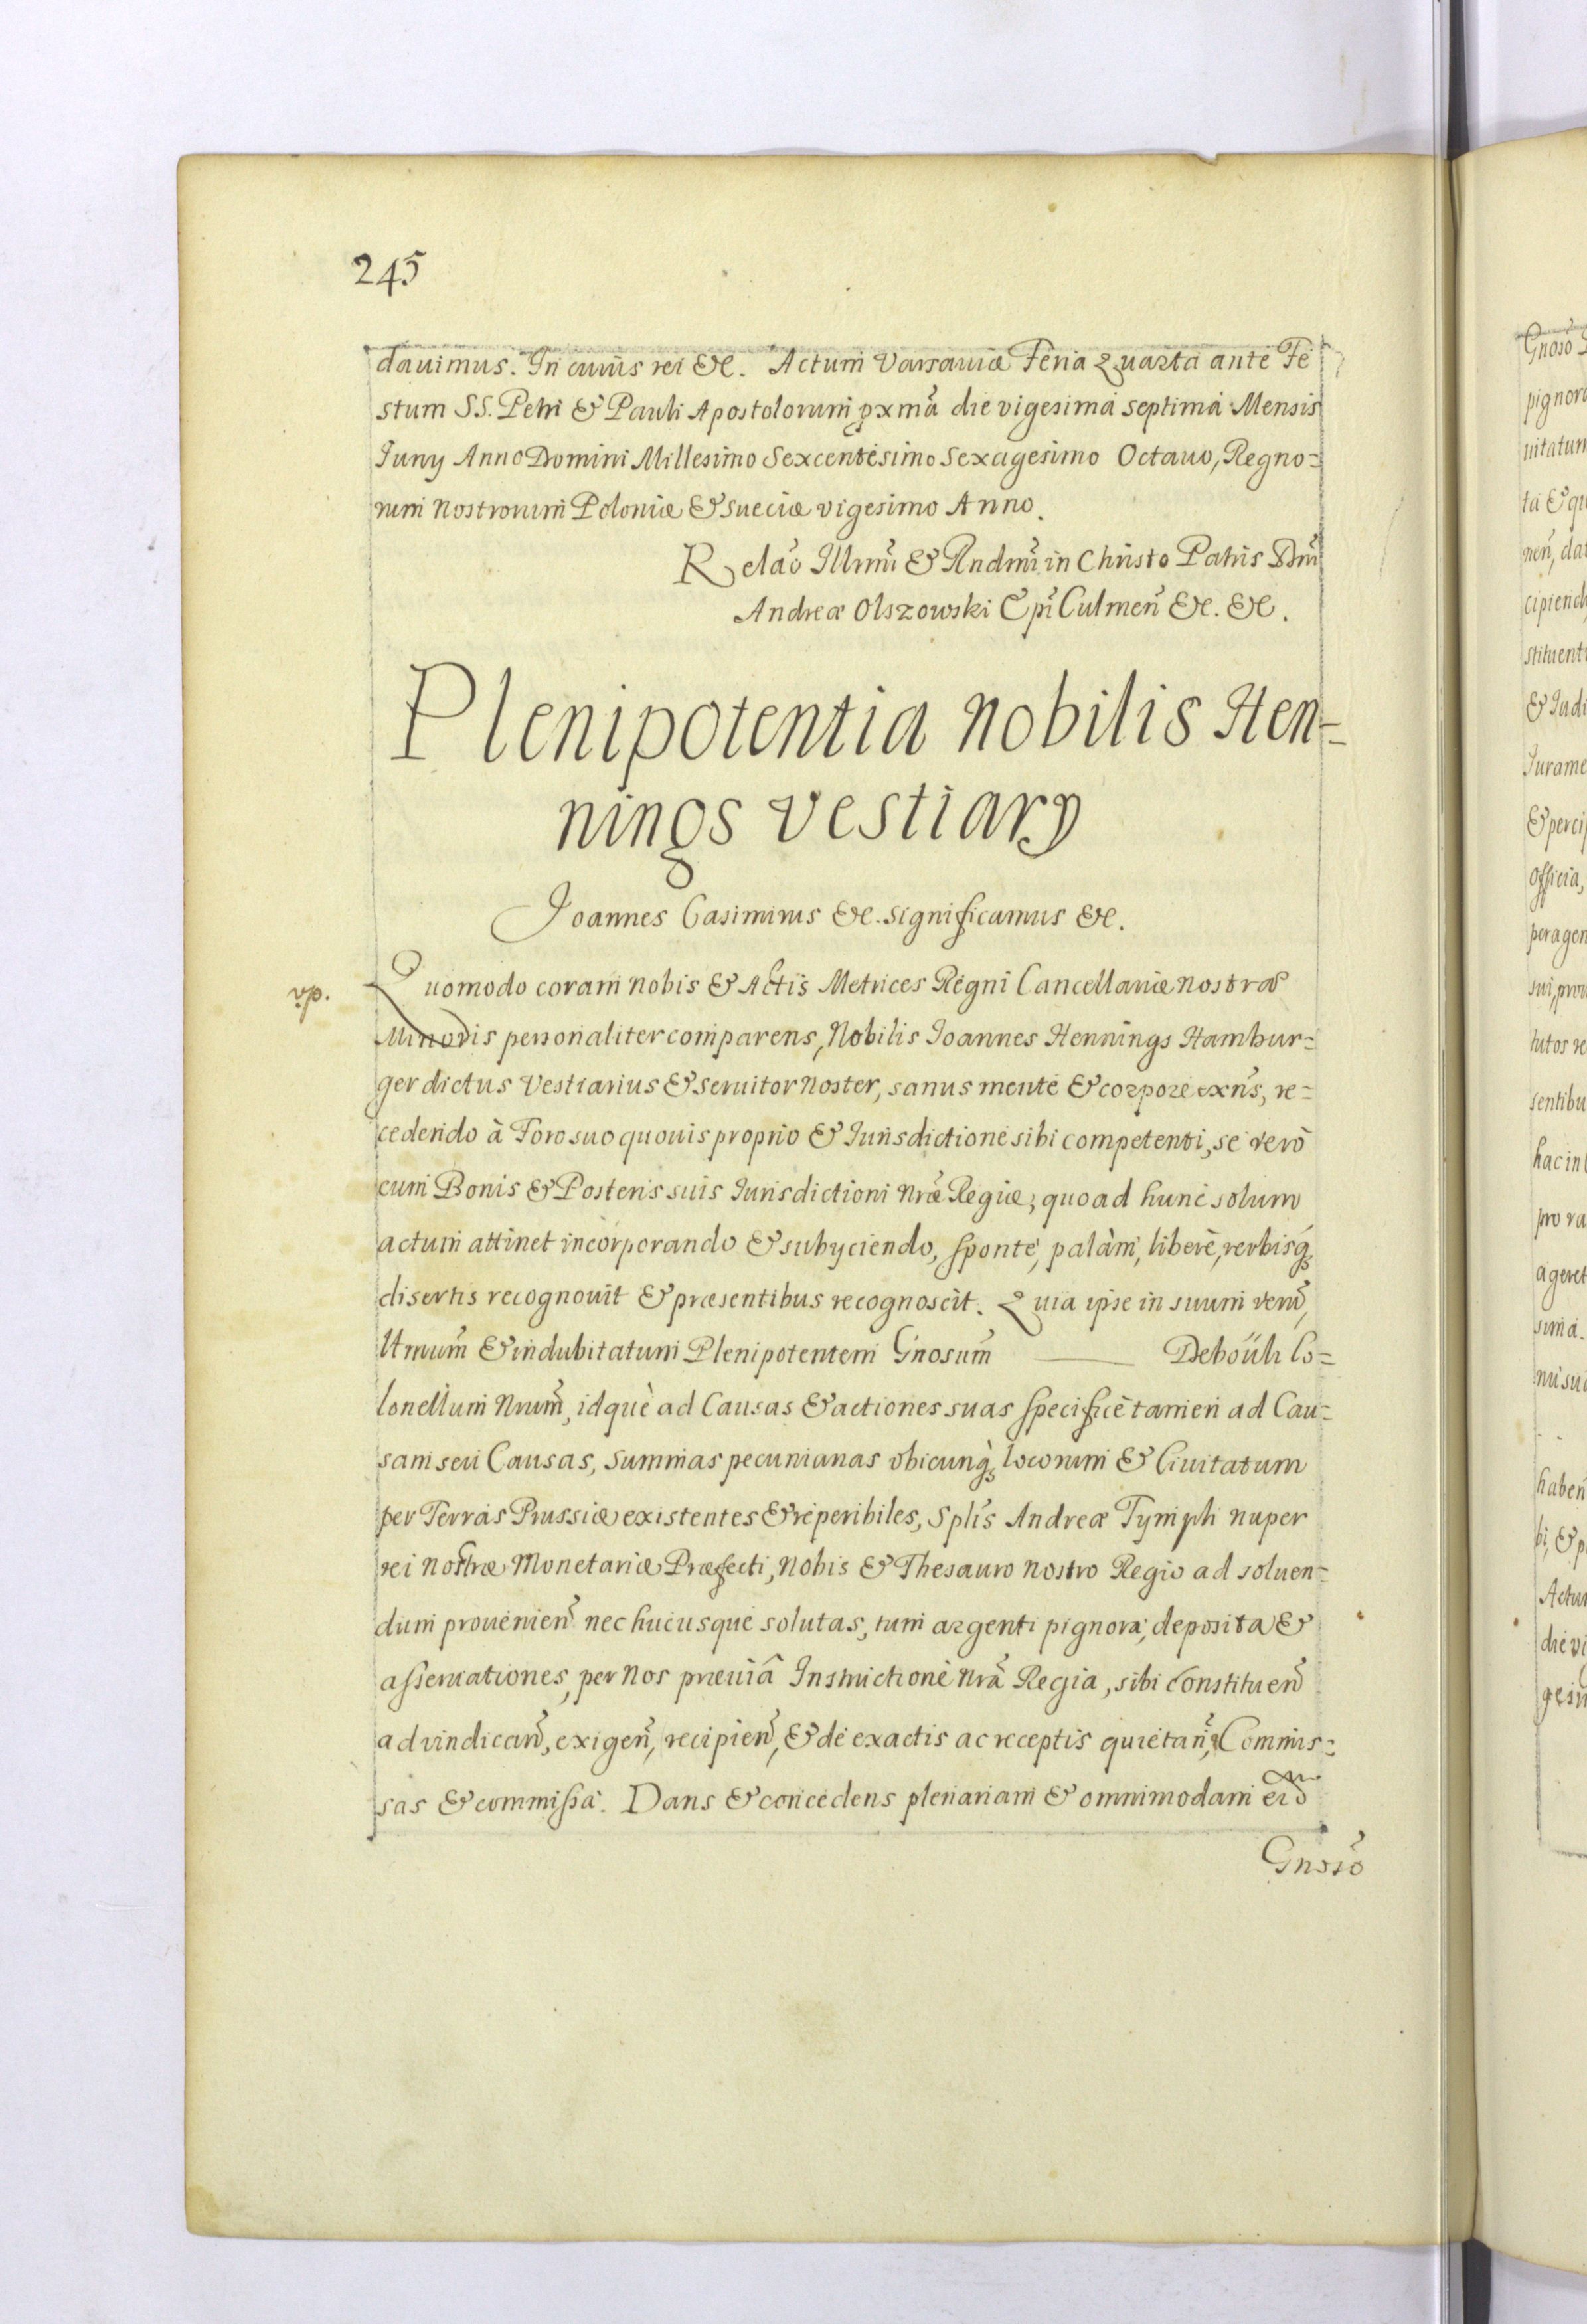 245
dauimus. In cuius rei &c. Actum Varsauiæ Feria Quarta ante Fe
stum SS. Petri & Pauli Apostolorum pxmã die vigesima septima Mensis
Iuny Anno Domini Millesimo Sexcentesimo Sexagesimo Octauo, Regno=
rum Nostrorum Poloniæ & Sueciæ vigesimo Anno.
Relaõ Illrmi & Rndmi in Christo Patris Dni
Andreæ Olszowski Epi Culmeñ &c. &c.
Plenipotentia Nobilis Hen=
nings Vestiarÿ
Joannes Casimirus &c. Significamus &c.
vp. Quomodo coram Nobis & Actis Metrices Regni Cancellariæ Nostræ
Minoris personaliter comparens, Nobilis Ioannes Hennings Hambur=
ger dictus Vestiarius & Seruitor Noster, sanus mente & corpore exns, re=
cedendo à Foro suo quouis proprio & Iurisdictione sibi competenti, se verò
cum Bonis & Posteris suis Iurisdictioni Nræ Regiæ, quo ad hunc solum
actum attinet incorporando & subyciendo, sponte, palàm, liberè, verbisq
disertis recognouit & præsentibus recognoscit. Quia ipse in suum verũ,
Ltmum & indubitatum Plenipotentem Gnosum —— Deboüh Co=
lonellum Nrum, idque ad Causas & actiones suas specificè tamen ad Cau=
sam seu Causas, Summas pecuniarias vbicunq locorum & Ciuitatum
per Terras Prussiæ existentes & reperibiles, Splis Andreæ Tymph nuper
rei Nostræ Monetariæ Præfecti, Nobis & Thesauro Nostro Regio ad soluen=
dum prouenieñ nec hucusque solutas, tum argenti pignora, deposita &
asseruationes, per Nos præuiâ Instructione Nrã Regia, sibi Constitueñ
ad vindicañ, exigeñ, recipieñ, & de exactis ac receptis quietañ, Commis=
sas & commissa. Dans & concedens plenariam & omnimodam eid
Gnoso